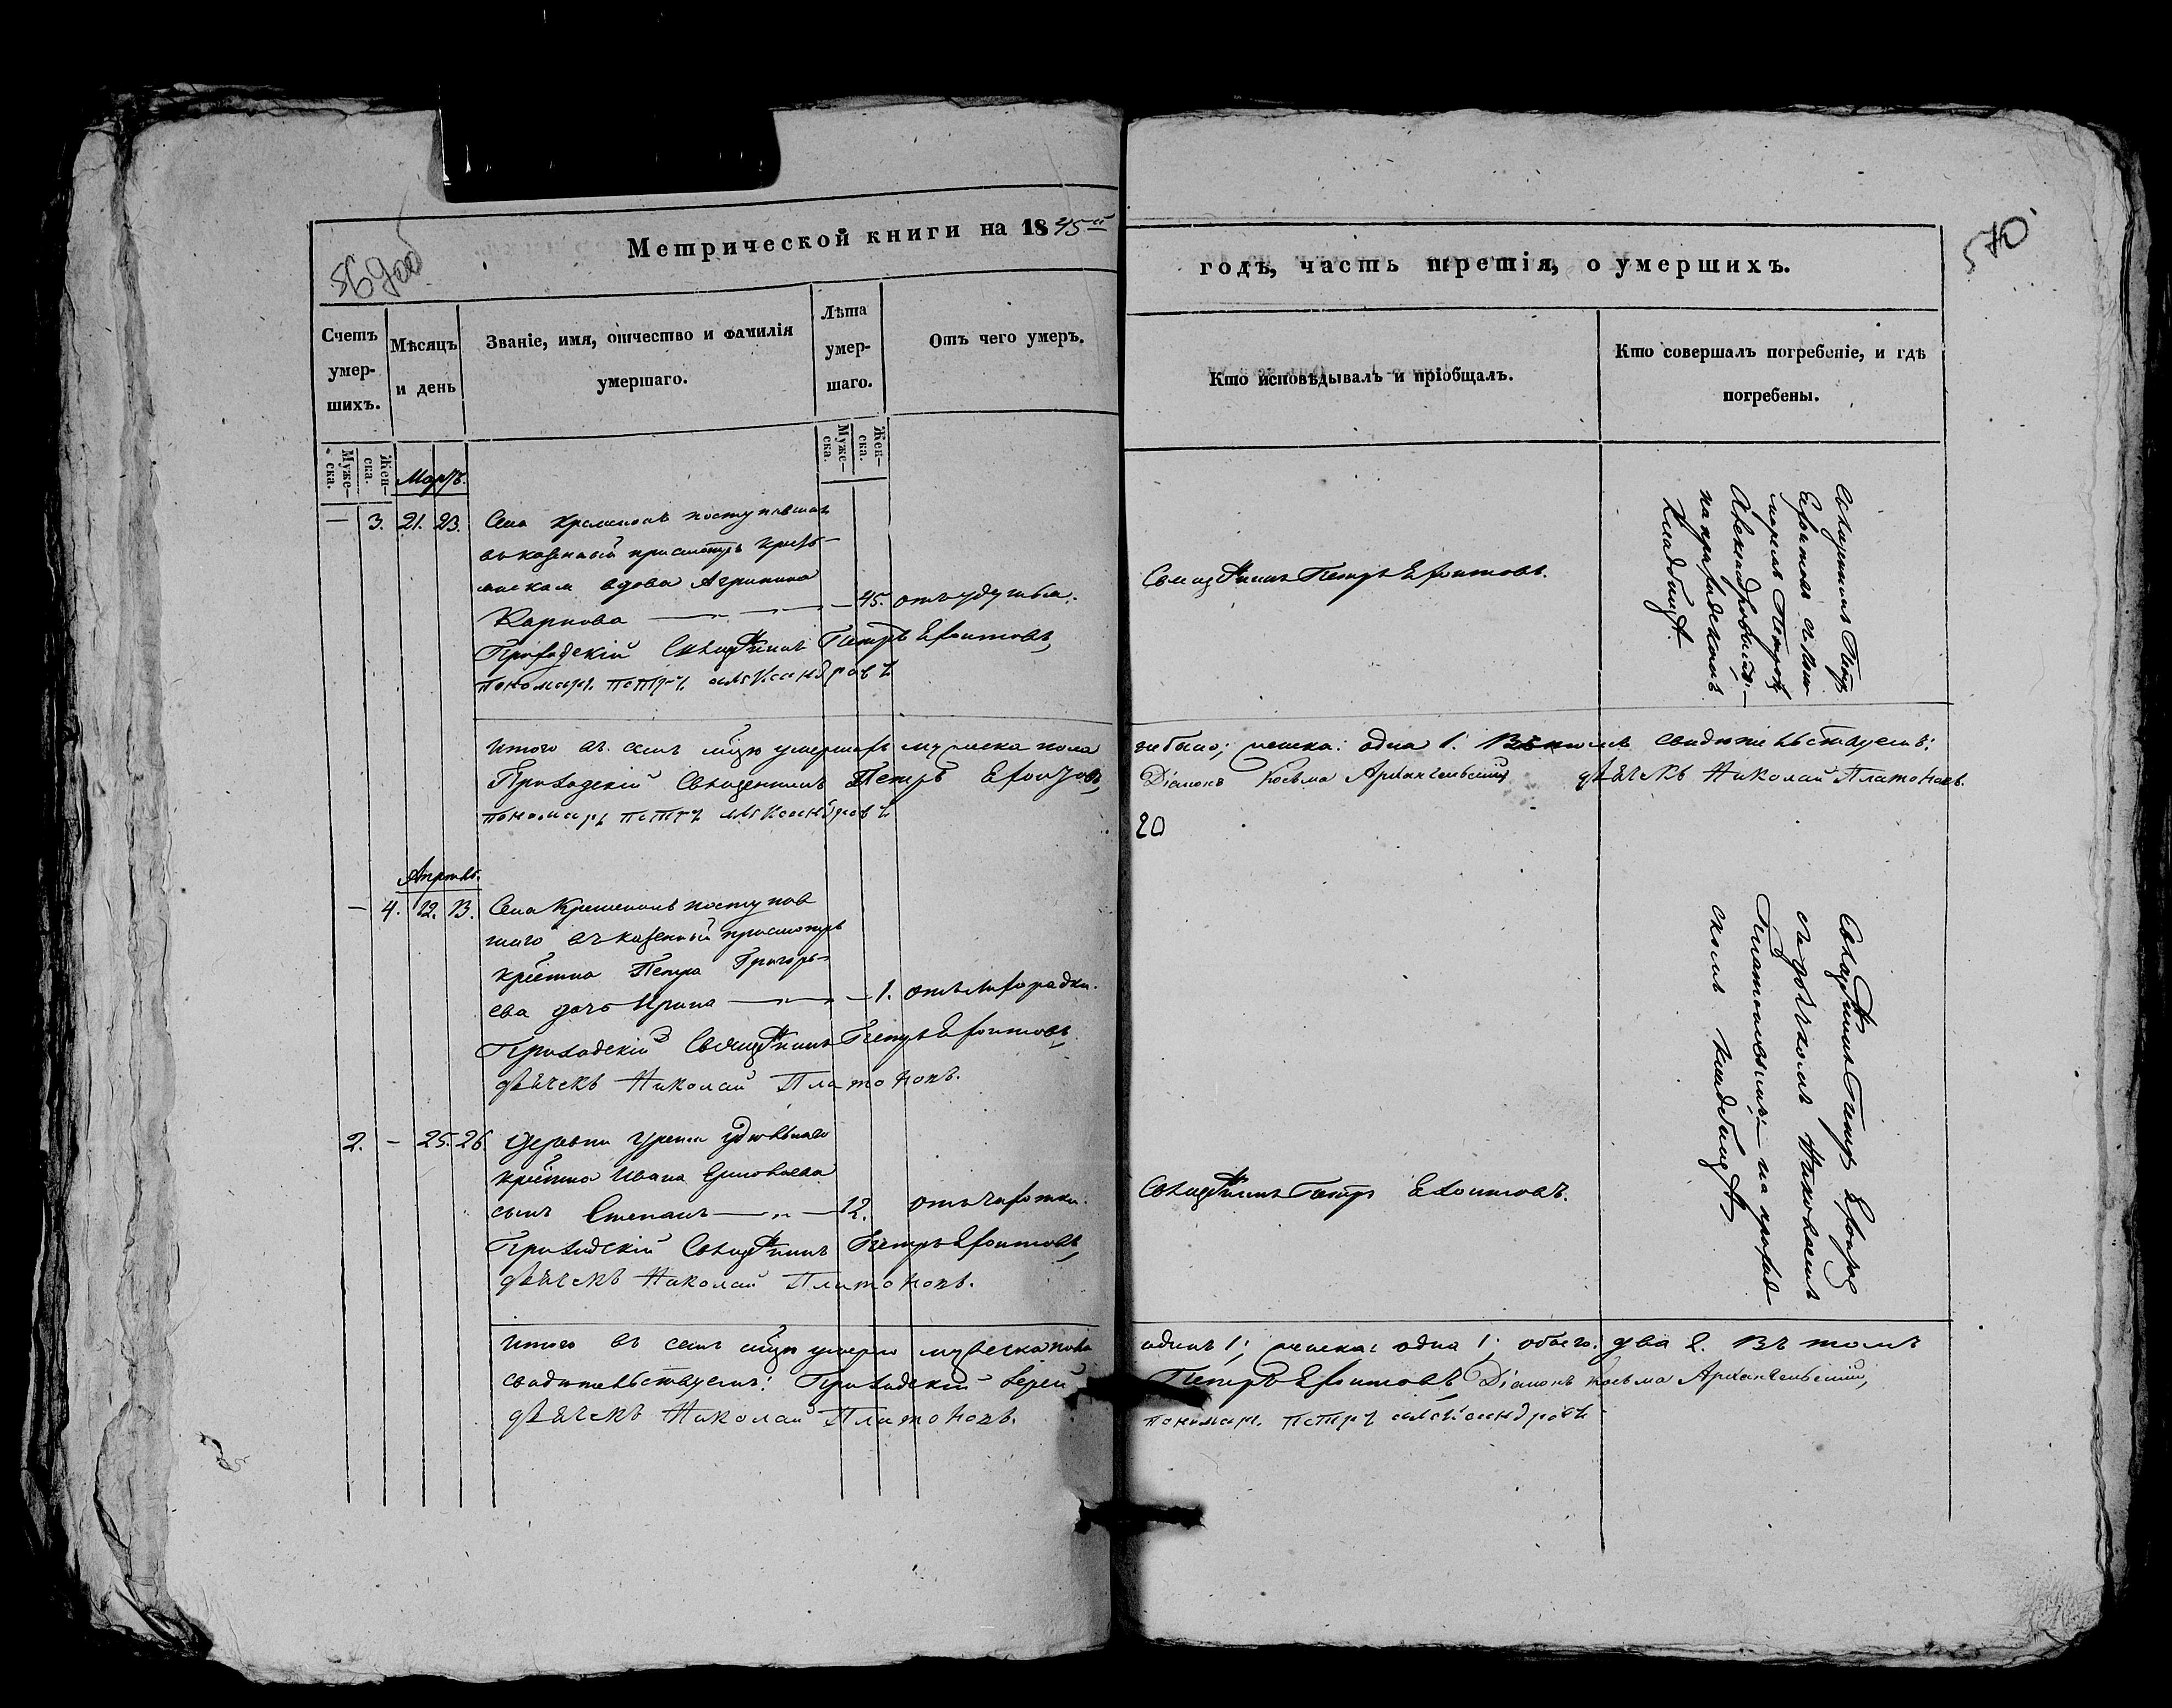 Метрической книги на 1845й
годъ, часть третія, о умершихъ.
570.
Счетъ умер-шихъ.
Мѣсяцъ и день
Званіе, имя, отчество и фамилія умершаго.
Лѣта умер-шаго.
Отъ чего умеръ.
Кто исповѣдывалъ и пріобщалъ.
Кто совершалъ погребеніе, и гдѣ погребены.
Муже-ска.
Жен-ска.
Муже-ска.
Жен-ска.
Мартъ.
— 3. 21. 23. Села поступившая
въ казенный присмотръ кресть-
янская вдова Агрипина
Карпова — 45. отъ удушья.
Приходскій Священникъ Петръ Ефимовъ,
пономарь петръ александровъ
Священникъ Петръ Ефимовъ.
Священникъ Петръ
Ефимовъ съ поно-
маремъ Петромъ
Александровымъ —
на приходскомъ
кладбищѣ
Итого въ семъ мцѣ умершихъ мужеска пола
не было; женска: одна 1. Въ томъ свидѣтельствуемъ:
Приходскій Священникъ Петръ Ефимовъ,
Діаконъ Косьма Архангельскій
дьячекъ Николай Платоновъ.
пономарь петръ александровъ
20
Апрѣль.
— 4. 12. 13. Села поступив
шаго въ казенный присмотръ
крестіна Петра Григорь-
ева дочь Ирина — 1. отъ лихорадки.
Приходскій Священникъ Петръ Ефимовъ
дьячекъ Николай Платоновъ.
2. — 25. 26. Деревни удѣльнаго
крестіна Ивана
сынъ Степанъ — 12. отъ чахотки.
Приходскій Священникъ Петръ Ефимовъ,
дьячекъ Николай Платоновъ.
Священникъ Петръ Ефимовъ.
Священникъ Петръ Ефимов
съ дьячкомъ Николаемъ
Платоновымъ — на приход
скомъ кладбищѣ
Итого въ семъ мцѣ умерло мужеска пола
одинъ 1; женска: одна 1; обоего: два 2. Въ томъ
свидѣтельствуемъ: Приходскій Іерей
Петръ Ефимовъ Діаконъ Косьма Архангельскій,
дьячекъ Николай Платоновъ.
пономарь петръ александровъ